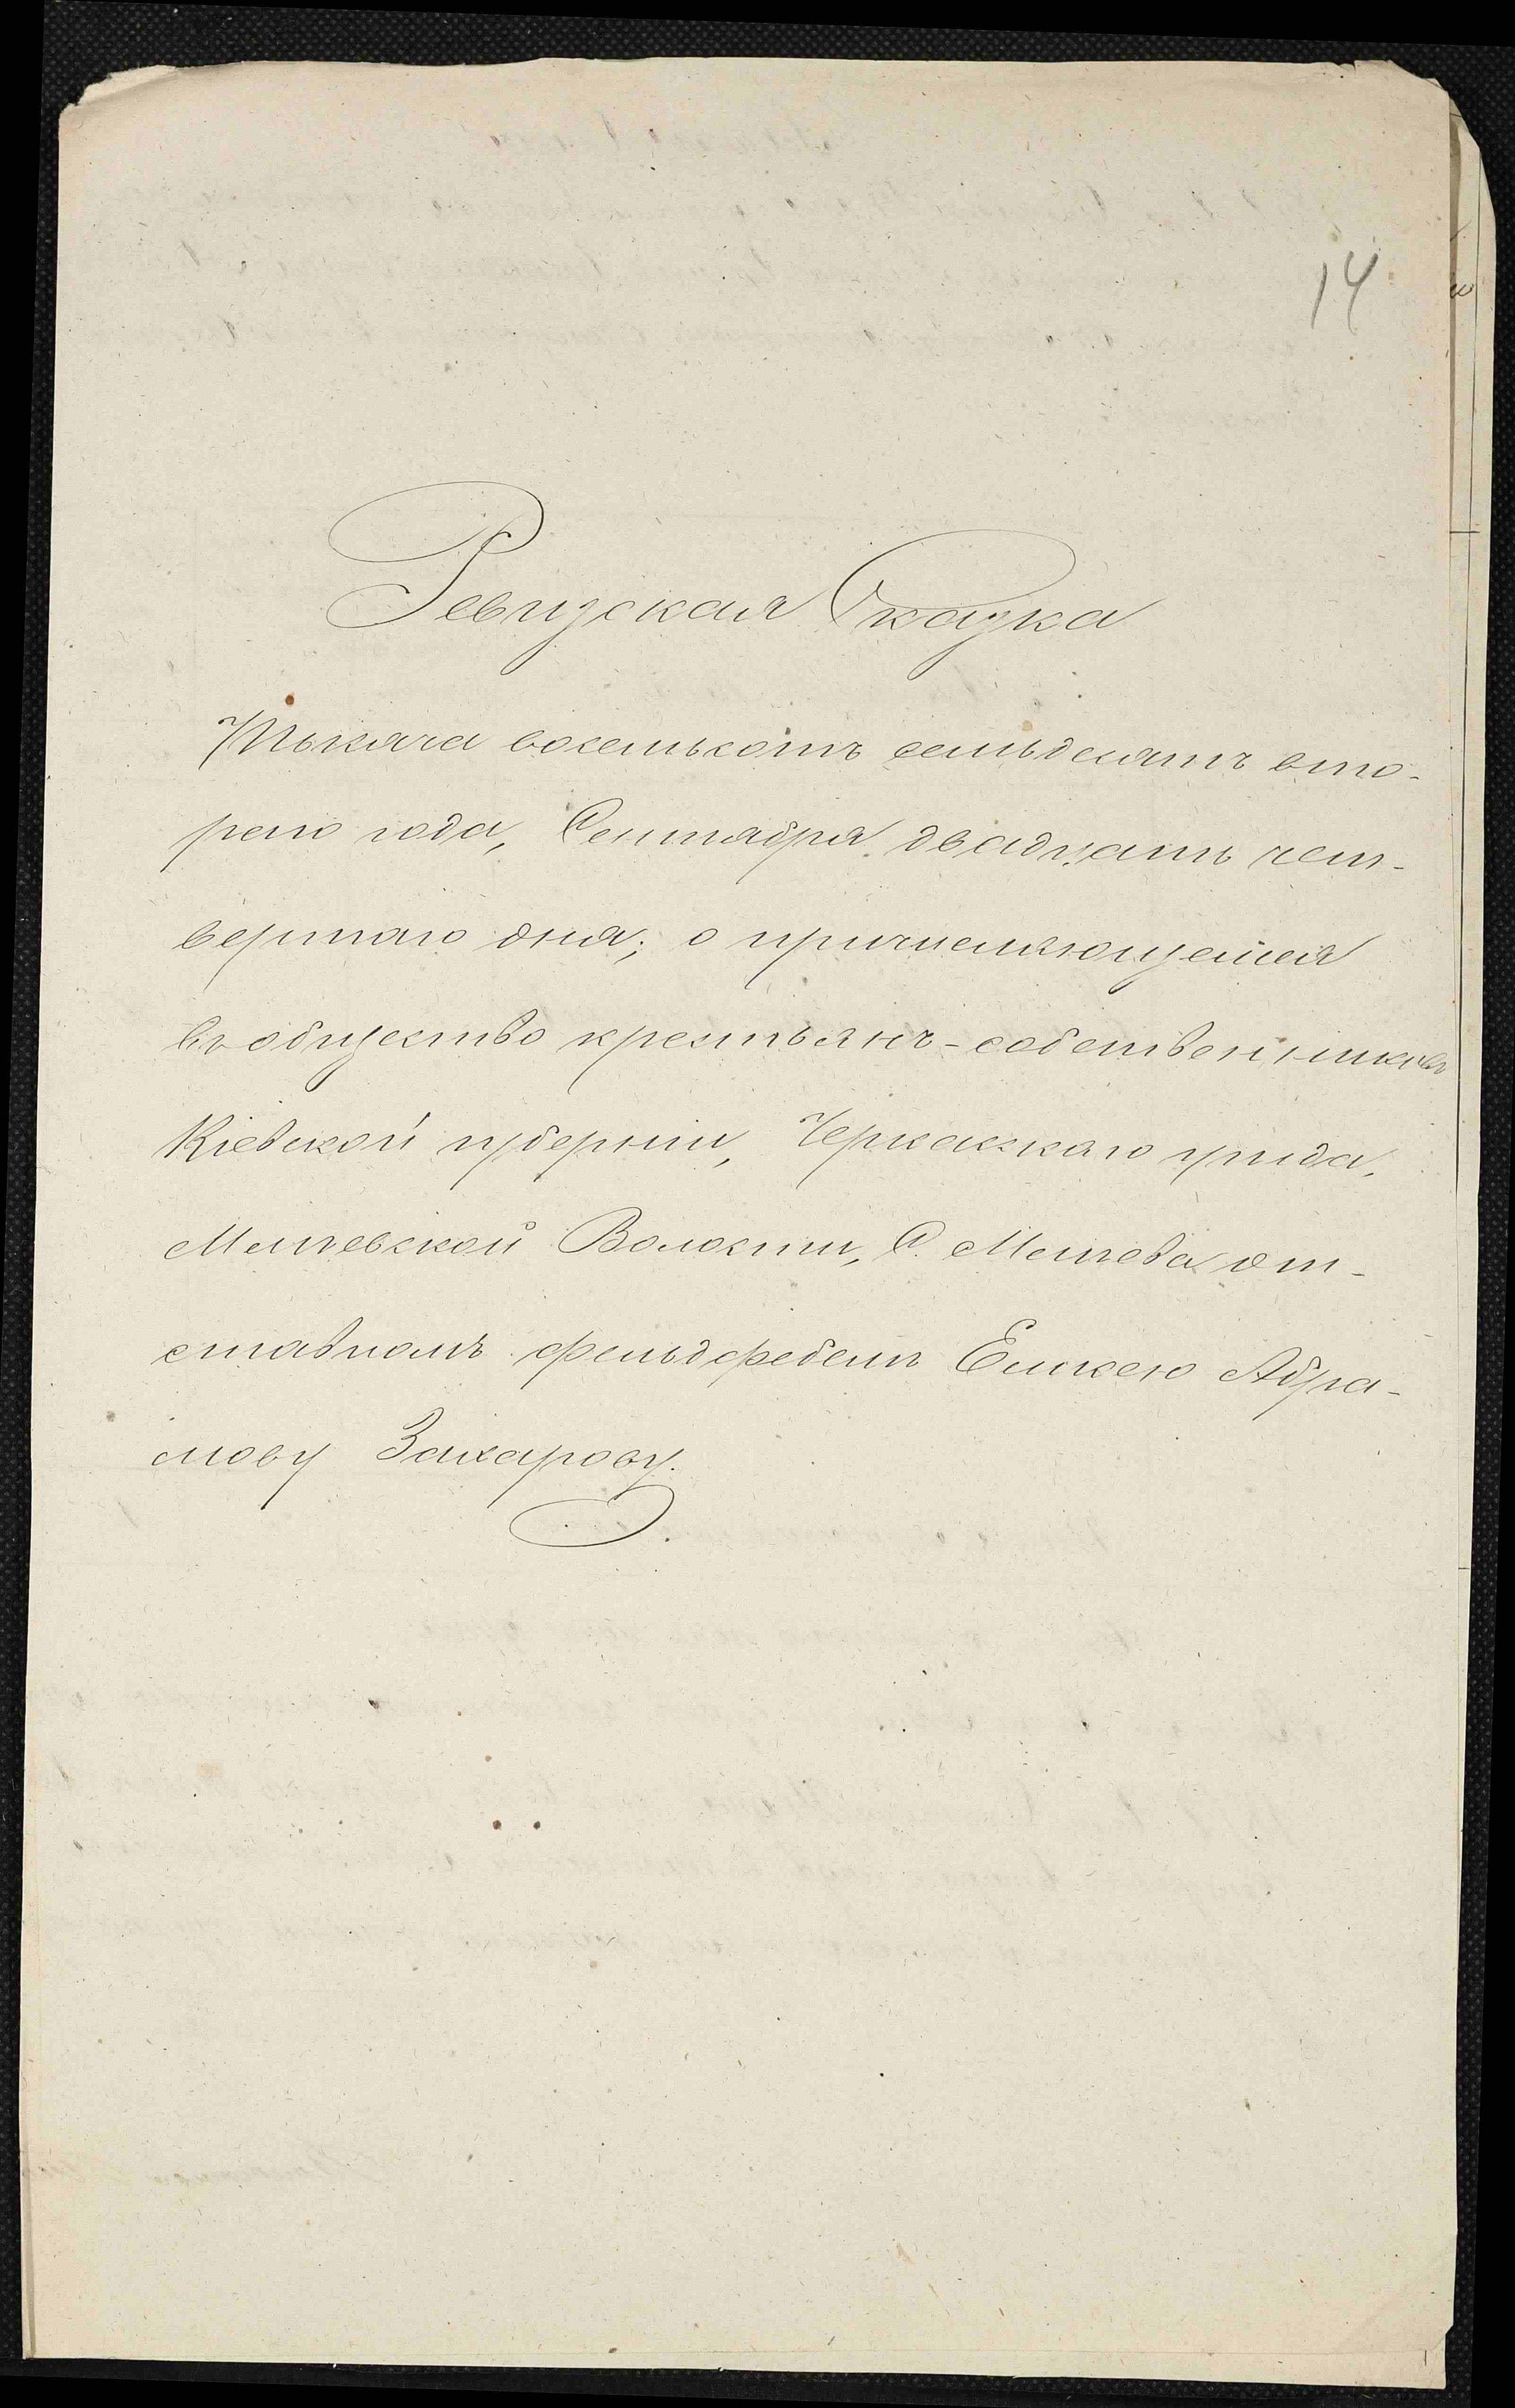 14
Ревизская Сказка
Тысяча восемьсотъ семьдесятъ вто-
раго года, Сентября двадцать чет-
вертаго дня; о причисляющемся
въ общество крестьянъ-собственниковъ
Кіевской губерніи, Черкасскаго уѣзда,
Мліевской Волости, С. Мліева от-
ставномъ фельдфебелѣ Елисею Абра-
мову Захарову.